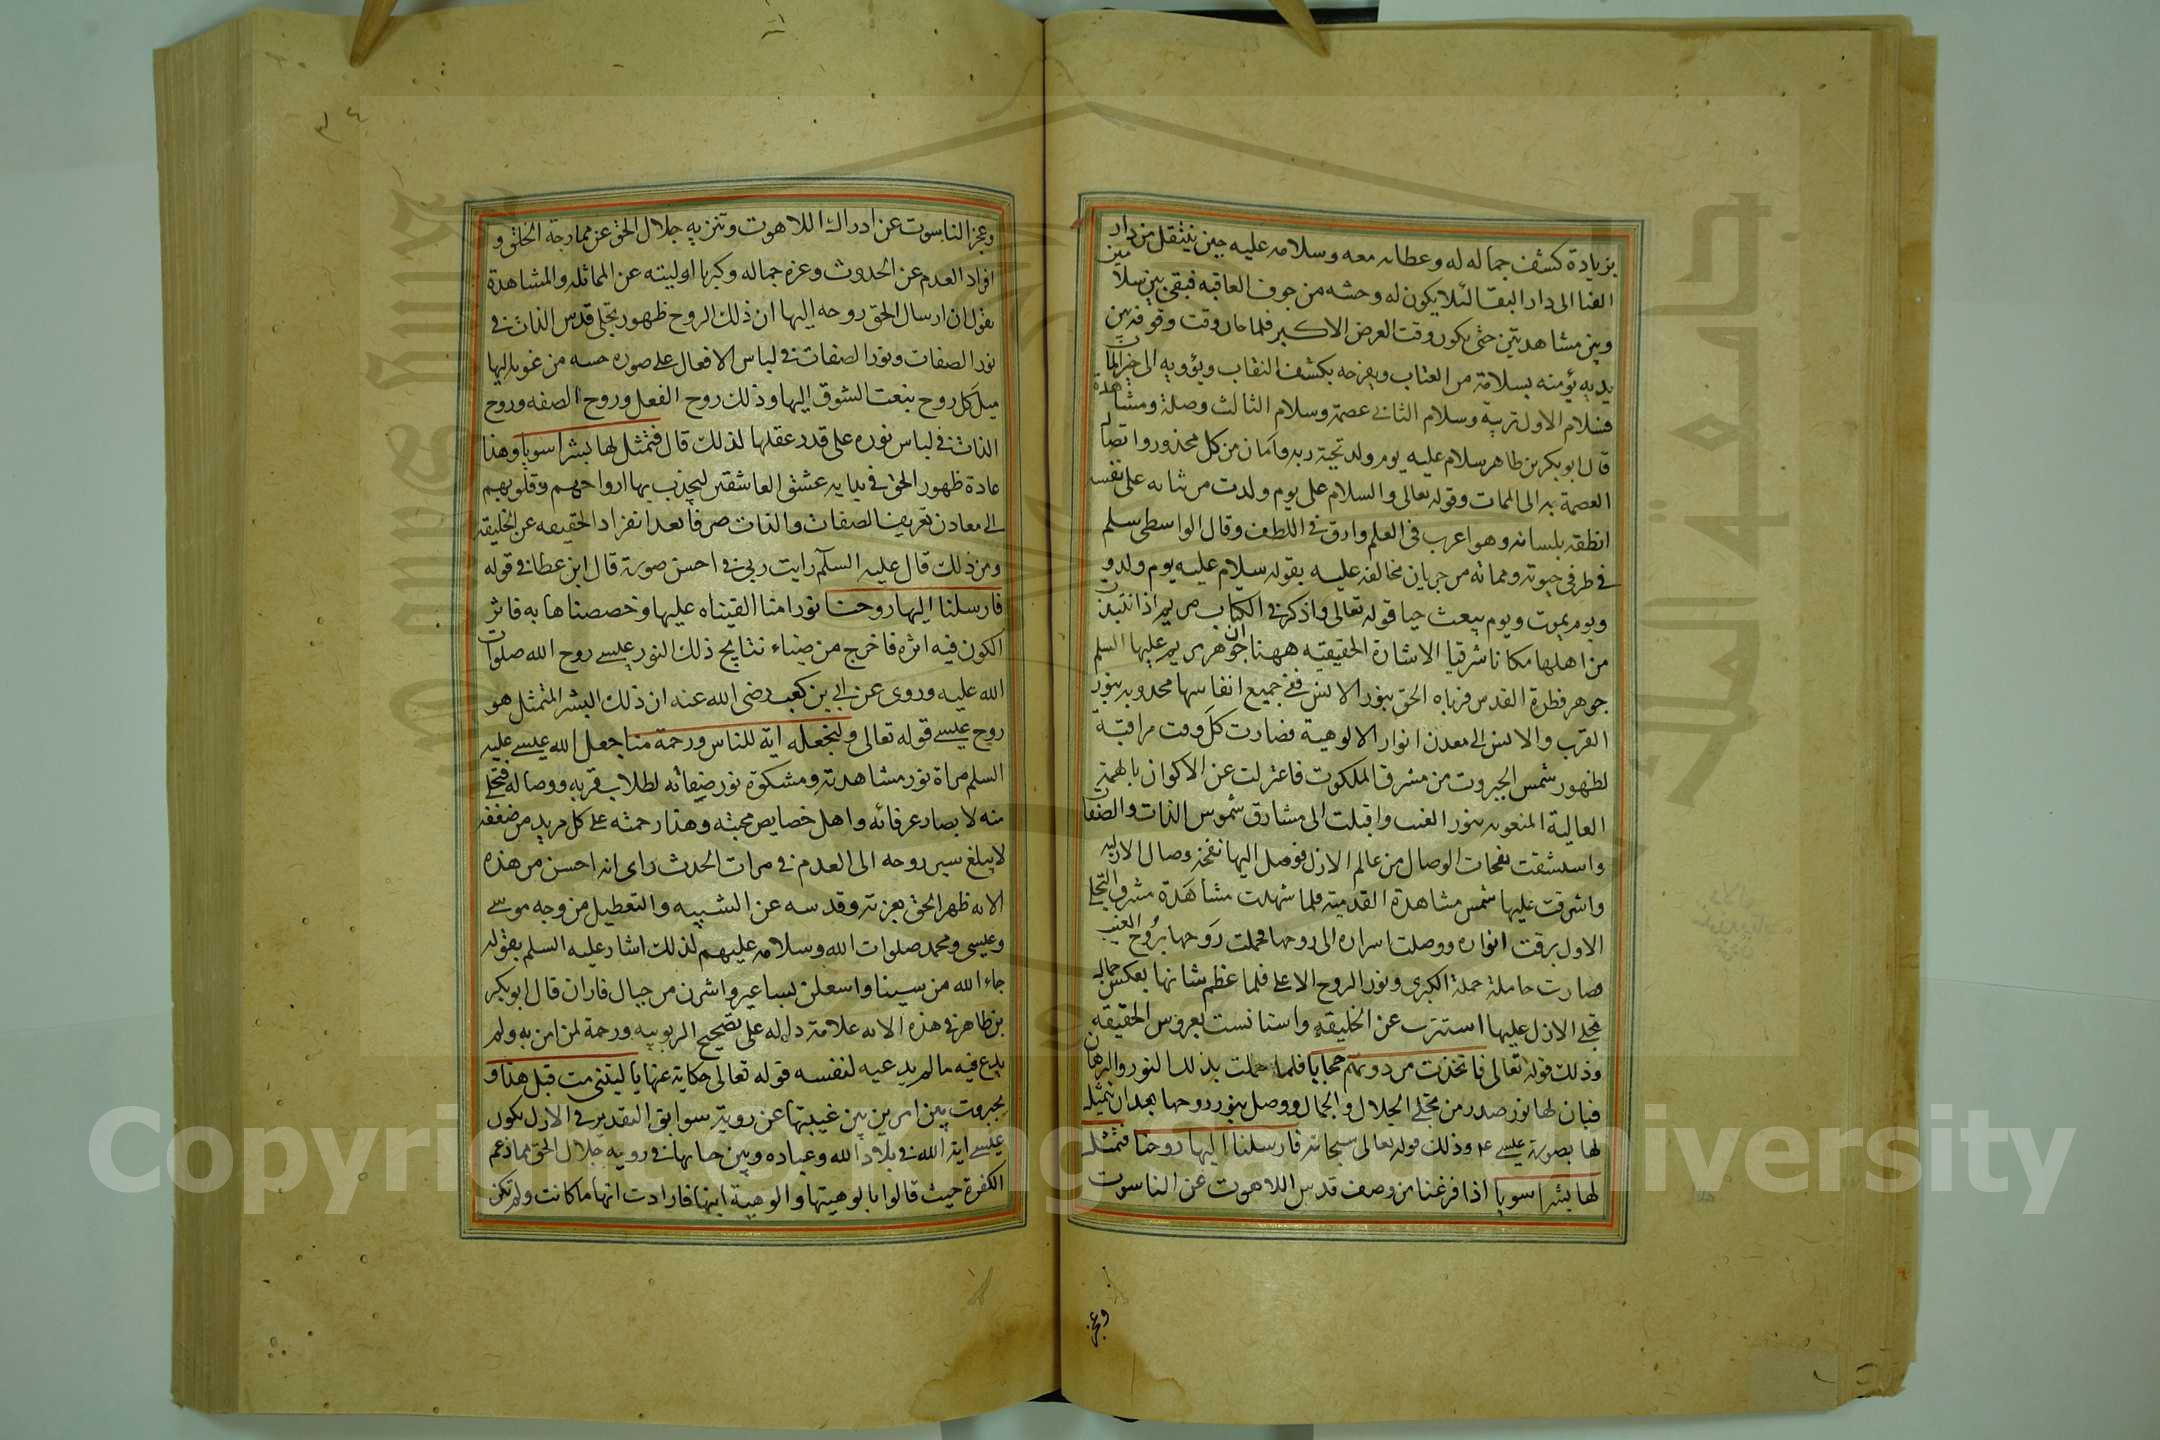 بزيادة كشف جماله له وعطائه معه وسلامه عليه حين ينتقل من دار
الفنا الى دار البقا لئلا يكون له وحشه من خوف العاقبه فبقى بين سلامين
وبين مشاهدتين حتى يكون وقت العرض الاكبر فلما حان وقت وقوفه بين
يديه يؤمنه بسلامة من العتاب ويفرحه بكشف النقاب ويؤويه الى خير المآب
فسلام الاول تربية وسلام الثانى عصمة وسلام الثالث وصلة ومشاهدة
قال ابو بكر بن طاهر سلام عليه يوم ولد تحية ربه وامان من كل محذور واتصال
العصمة به الى الممات وقوله تعالى والسلام على يوم ولدت من ثنائه على نفسه
انطقه بلسانه وهو اعرب فى العلم وادق فى اللطف وقال الواسطى سلم
فى طرفى حيوته ومماته من جريان مخالفة عليه بقوله سلام عليه يوم ولد و
ويوم يموت ويوم يبعث حيا قوله تعالى واذكر فى الكتاب مريم اذ انتبذت
من اهلها مكانا شرقيا الاشارة الحقيقيه ههنا ان جوهر مريم عليها السلم
جوهر فطرة القدس فرباه الحق بنور الانس ففى جميع انفاسها مجذوبه بنور
القرب والانس الى معدن انوار الالوهية فصارت كل وقت مراقبة
لظهور شمس الجبروت من مشرق الملكوت فاعتزلت عن الاكوان بالهمة
العالية المنعوته بنور الغيب واقبلت الى مشارق شموس الذات والصفات
واستنشقت نفحات الوصال من عالم الازل فوصل اليها نفحة وصال الازليه
واشرقت عليها شمس مشاهدة القدمية فلما شهدت مشاهدة مشرق التجلى
الاول برقت انواره ووصلت اسراره الى روحها فحملت روحها بروح الغيب
صارت حاملة حملة الكبرى ونور الروح الاعلى فلما عظم شانها بعكس جماله
تجلى الازل عليها استترت عن الخليقه واستانست بعروس الحقيقه
وذلك قوله تعالى فاتخذت من دونهم حجابا فلما حملت بذلك النور والبرهان
فبان لها نور صدر من تجلى الجلال والجمال ووصل بنور روحها بعد ان يتمثل
لها بصورة عيسى ع م وذلك قوله تعالى سبحانه فارسلنا اليها روحنا فتمثل
لها بشرا سويا اذا فرغنا من وصف قدس اللاهوت عن الناسوت
وعجز
وعجز الناسوت عن ادراك اللاهوت وتنزيه جلال الحق عن ممازجة الخلق و
افراد القدم عن الحدوث وعزة جماله وكبريا اوليته عن المماثله والمشاهدة
نقول ان ارسال الحق روحه اليها ان ذلك الروح ظهور تجلى قدس الذات فى
نور الصفات ونور الصفات فى لباس الافعال على صورة حسنه مرغوبة اليها
ميل كل روح بنعت الشوق اليها وذلك روح الفعل وروح الصفه وروح
الذات فى لباس نوره على قدر عقلها لذلك قال فتمثل لها بشرا سويا وهذا
عادة ظهور الحق فى بداية عشق العاشقين ليجذب بها ارواحهم وقلوبهم
الى معادن تعريف الصفات والذات صرفا بعد انفراد الحقيقه عن الخليقة
ومن ذلك قال عليه السلم رايت ربى فى احسن صورة قال ابن عطا فى قوله
فارسلنا اليها روحنا نورا منا القيناه عليها وخصصناها به فاثر
الكون فيه اثره فاخرج من ضياء نتايج ذلك النور عيسى روح الله صلوات
الله عليه وروى عن ابى بن كعب رضى الله عنه ان ذلك البشر المتمثل هو
روح عيسى قوله تعالى ولنجعله اية للناس ورحمة منا جعل الله عيسى عليه
السلم مراة نور مشاهدته ومشكوة نور صفاته لطلاب قربه ووصاله فتجلى
منه لابصار عرفائه واهل خصايص محبته وهذا رحمته على كل مريد من ضعفه
لا يبلغ سير روحه الى القدم فى مرات الحدث راى انه احسن من هذه
الايه ظهر الحق بعزته وقدسه عن التشبيه والتعطيل من وجه موسى
وعيسى ومحمد صلوات الله وسلامه عليهم لذلك اشار عليه السلم بقوله
جاء الله من سينا واستعلن بساعير واشرق من جبال فاران قال ابو بكر
بن طاهر فى هذه الايه علامة دالة على تصحيح الربوبيه ورحمة لمن امن به ولم
يدع فيه ما لم يدعيه لنفسه قوله تعالى حكاية عنها يا ليتنى مت قبل هذا و
تجبرت بين امرين بين غيبتها عن روية سوابق التقدير فى الازل بكون
عيسى اية الله فى بلاد الله وعباده وبين حيائها فى روية جلال الحق مما زعم
الكفرة حيث قالوا بالوهيتها والوهية ابنها فارادت انها ما كانت ولم تكن
Copyright © King Saud University
جامعة الملك سعود